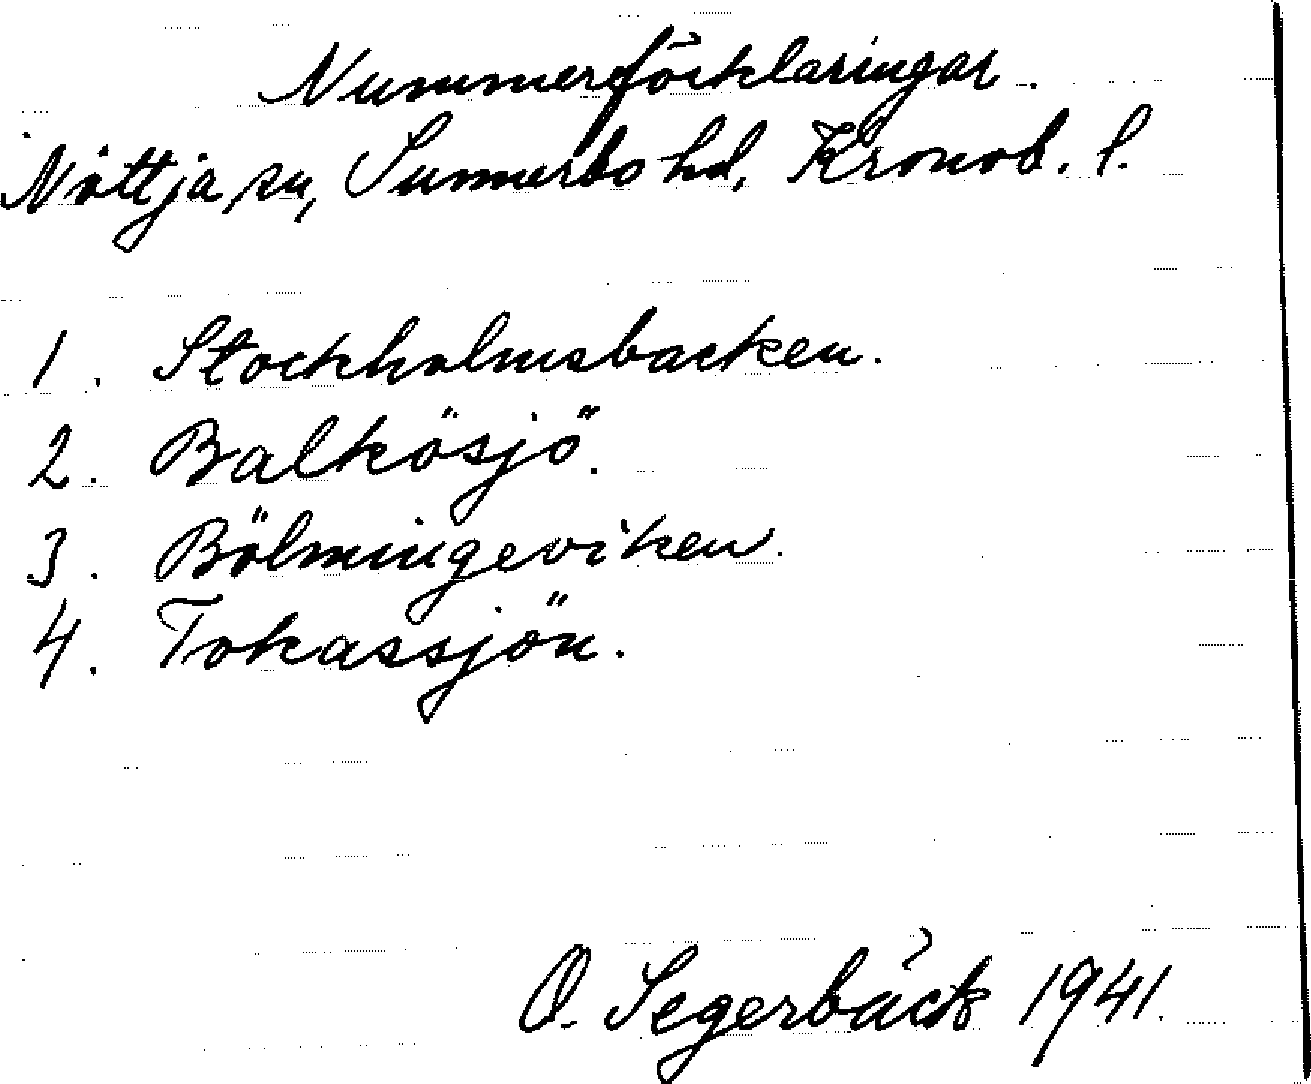 Nummerförklaringar.
Nöttja sn, Sunnerbo hd, Kronob. l.
1. Stockholmsbacken.
2. Balkösjö.
3. Bölmingeviken.
4. Tokassjön.
O. Segerbäck 1941.